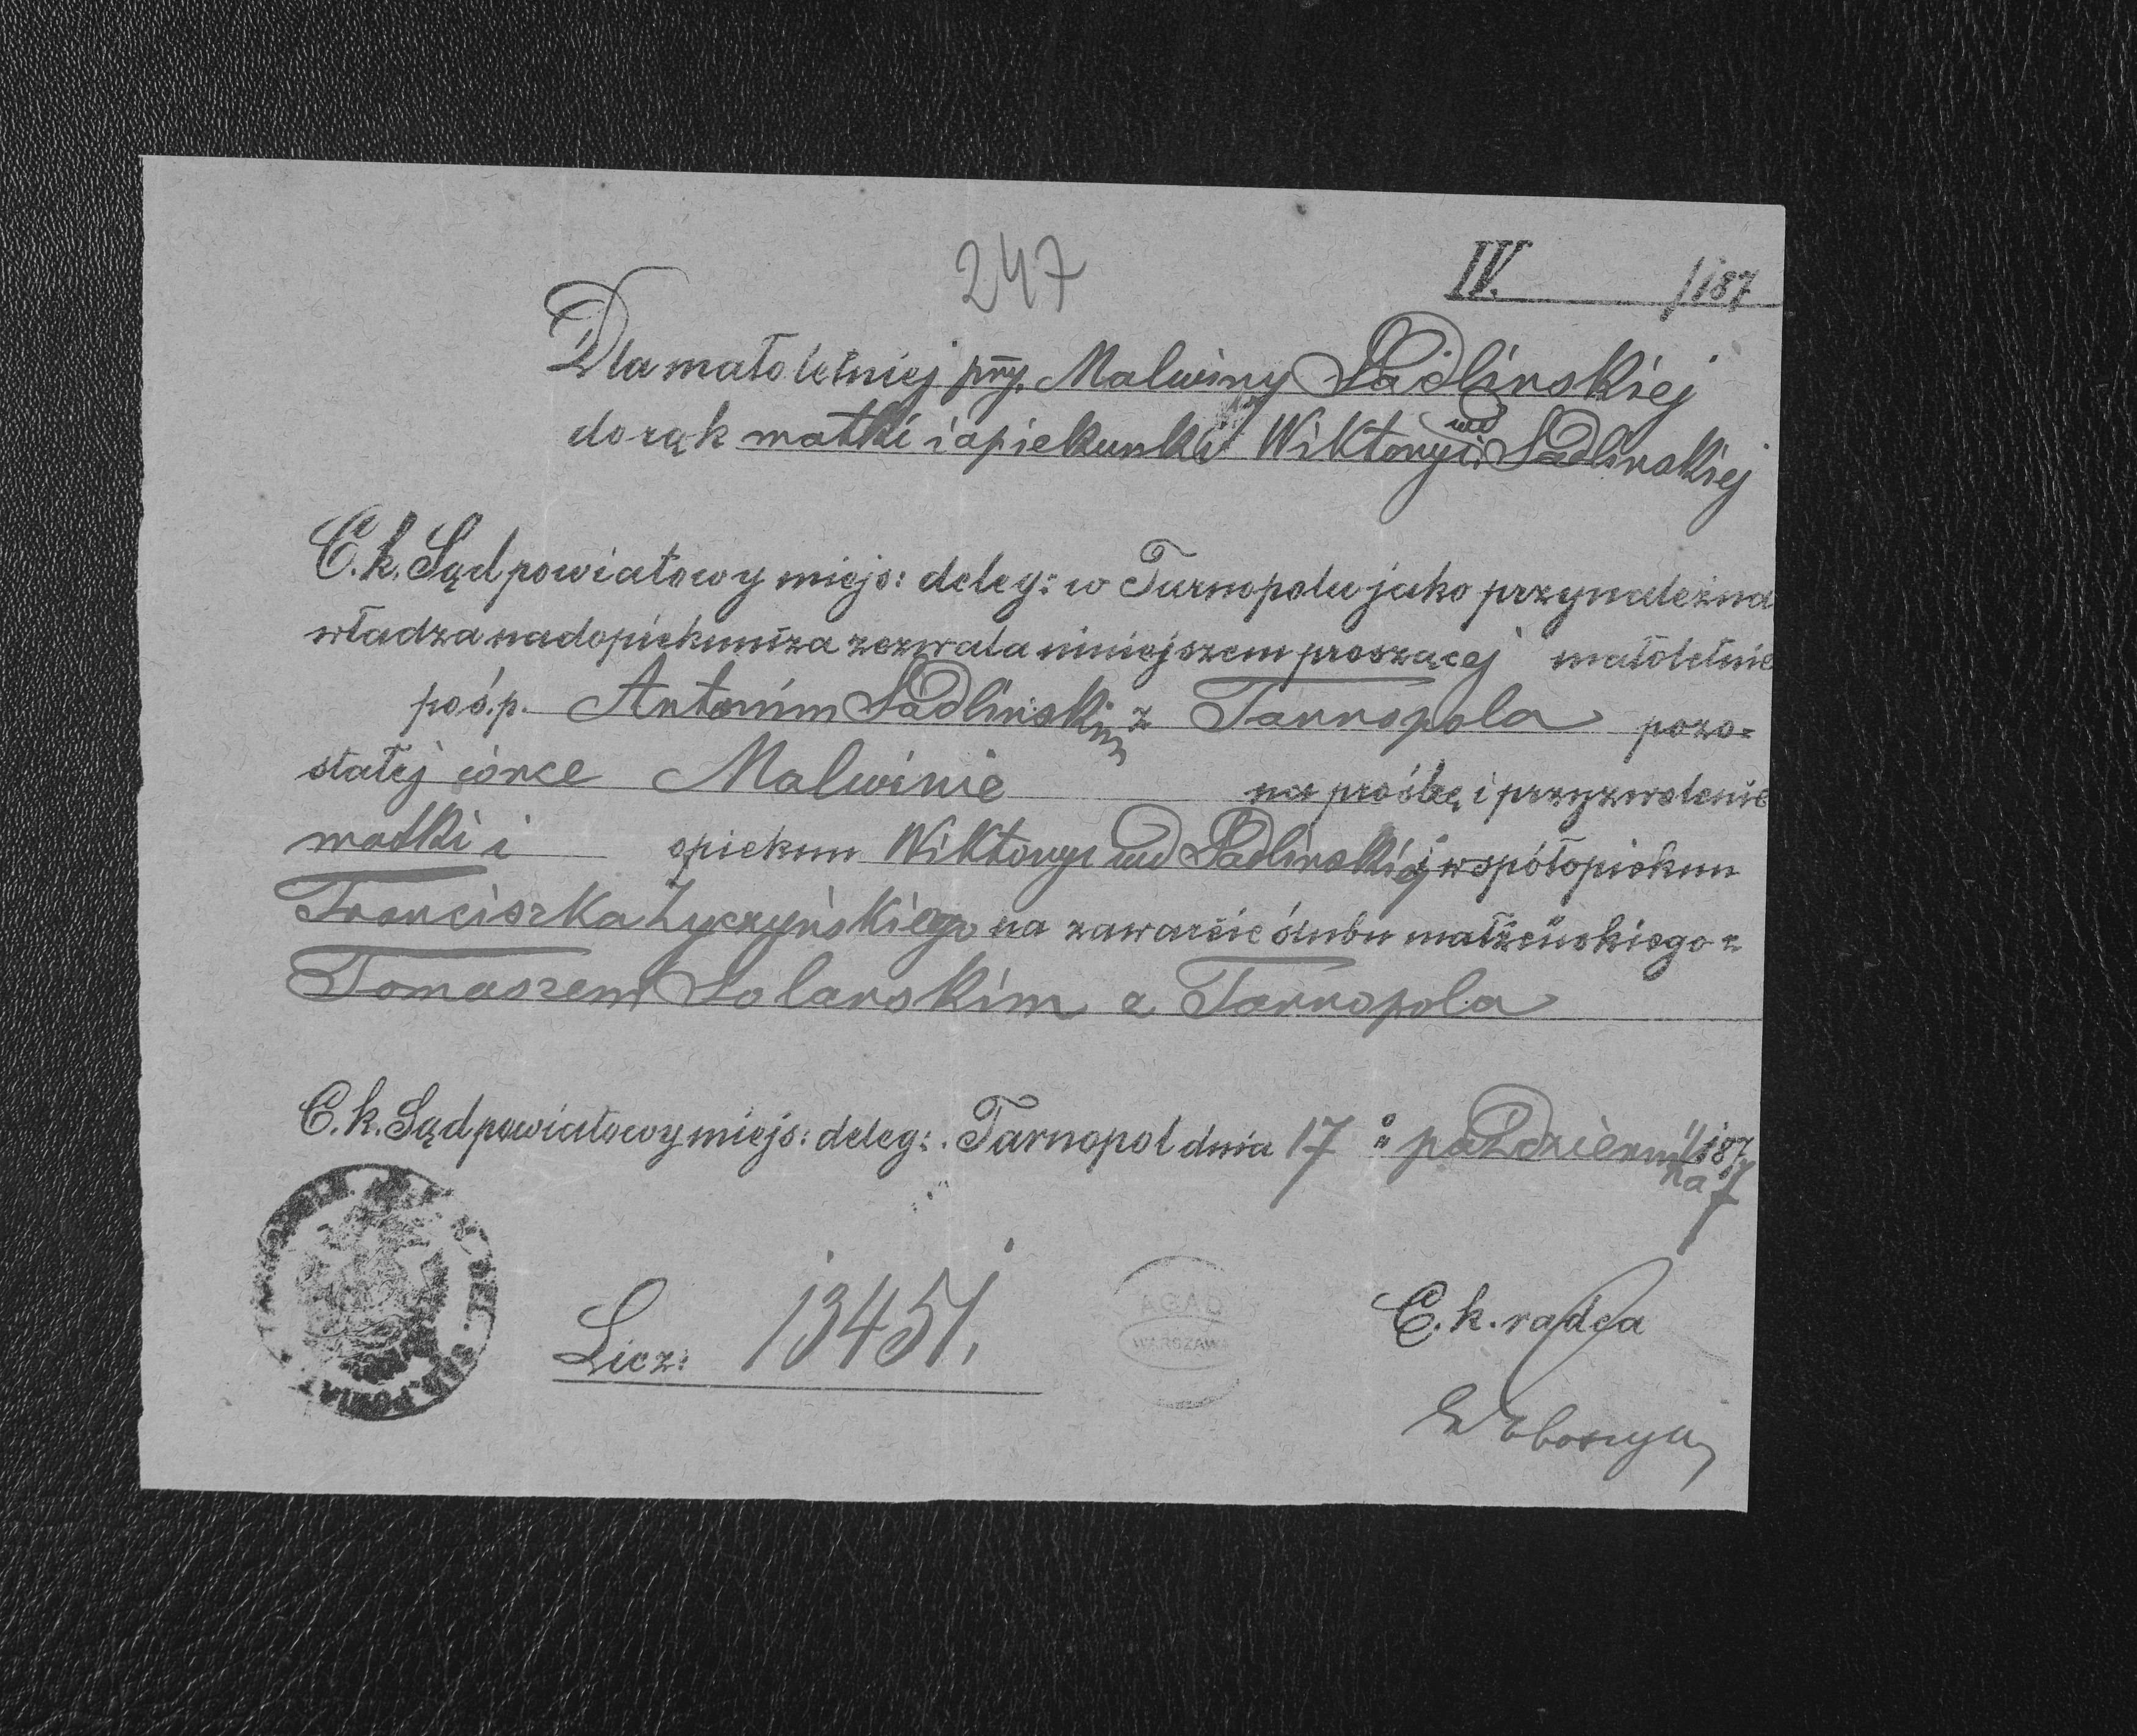 247
IV. /187
Dla małoletniej pny. Malwiny Sadlinskiej
do rąk matki i opiekunki Wiktoryi wd Sadlinskiej
C. k. Sąd powiatowy miejs: deleg: w Tarnopolu jako przynależna
władza nadopiekuńcza zezwala niniejszem proszącej małoletnie
po ś.p. Antonim Sadlinskim z Tarnopola pozo-
stałej córce Malwinie na prośbę i przyzwolenie
matki i opiekun Wiktoryi wd Sadlinskiej i współopiekun
Franciszka Zyczyńskiego na zawarcie ślubu małżeńskiego z
Tomaszem Solarskim z Tarnopola
C. k. Sąd powiatowy miejs: deleg: Tarnopol dnia 17 października 1877
Licz: 13451.
C. k. radca
AGAD
WARSZAWA